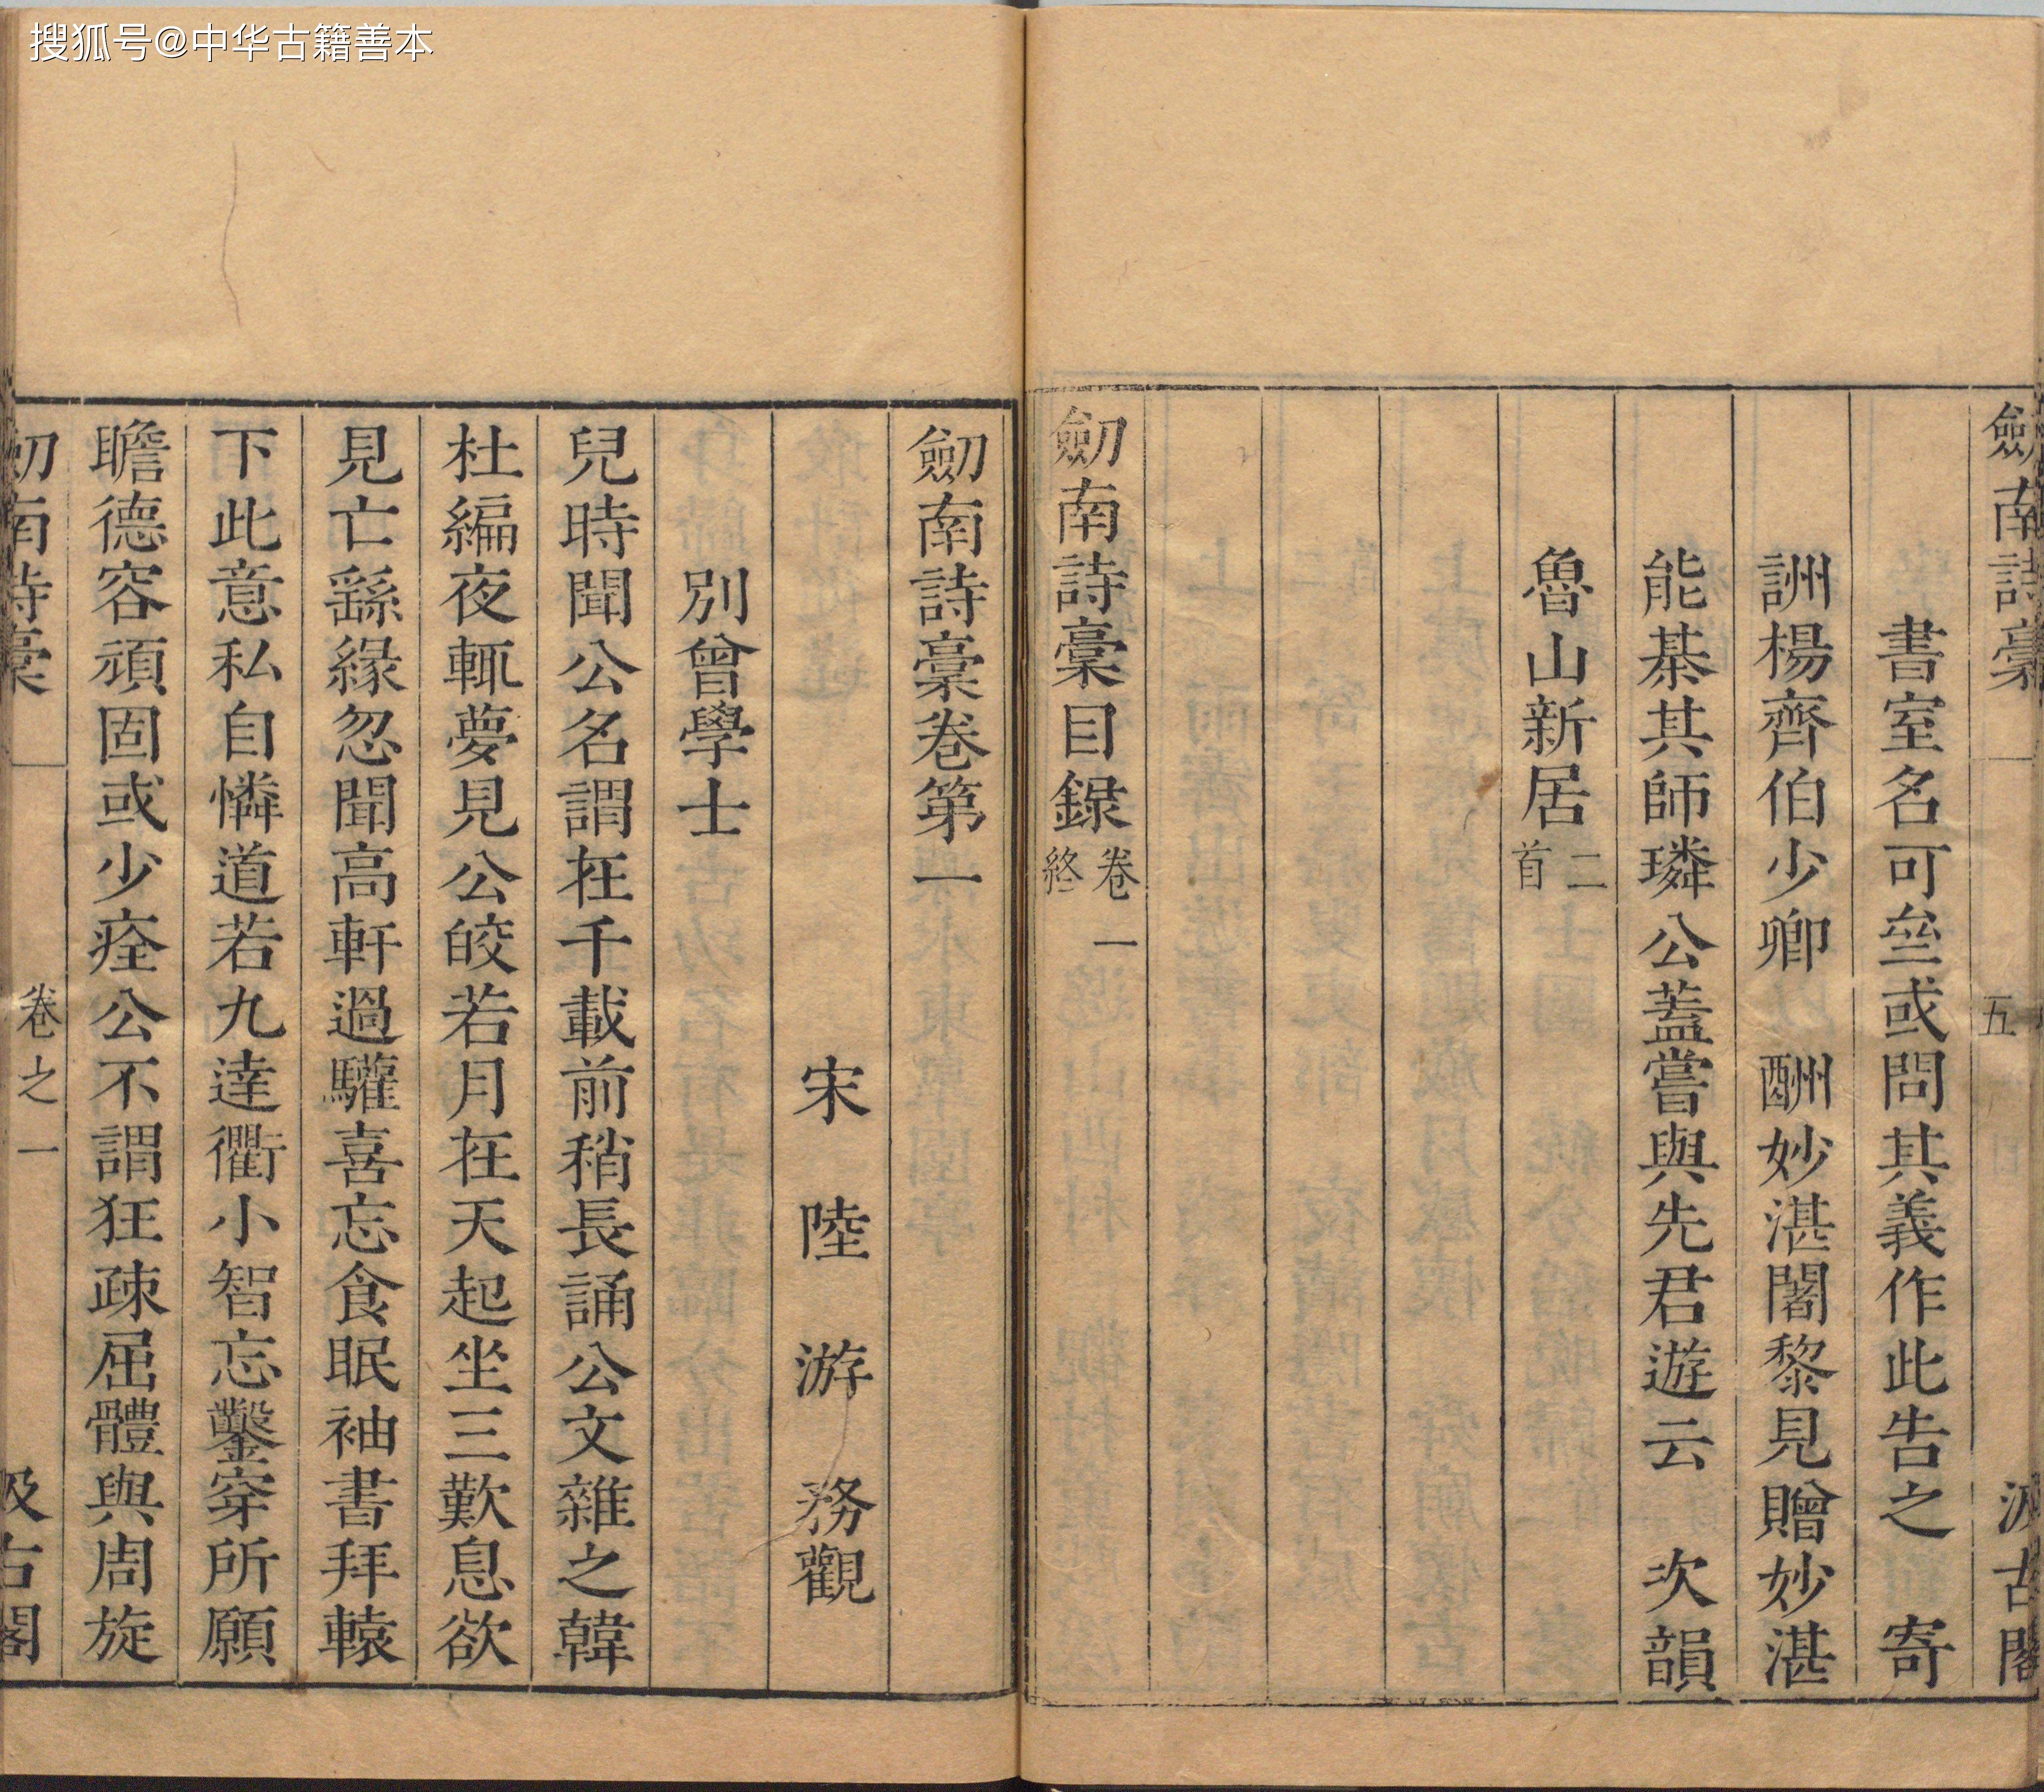 搜狐号@中华古籍善本
劒南詩稾 五 汲古閣
書室名可齋或問其義作此告之 寄
詶楊齊伯少卿 酬妙湛闍黎見贈妙湛
能棊其師璘公蓋嘗與先君遊云 次韻
魯山新居二首
劒南詩稾目錄卷一終
劒南詩稾卷第一
宋 陸 游 務觀
別曾學士
兒時聞公名謂在千載前稍長誦公文雜之韓
杜編夜輒夢見公皎若月在天起坐三歎息欲
見亡繇緣忽聞高軒過驩喜忘食眠袖書拜轅
下此意私自憐道若九達衢小智忘鑿穿所願
瞻德容頑固或少痊公不謂狂疎屈體與周旋
劒南詩稾 卷之一 汲古閣